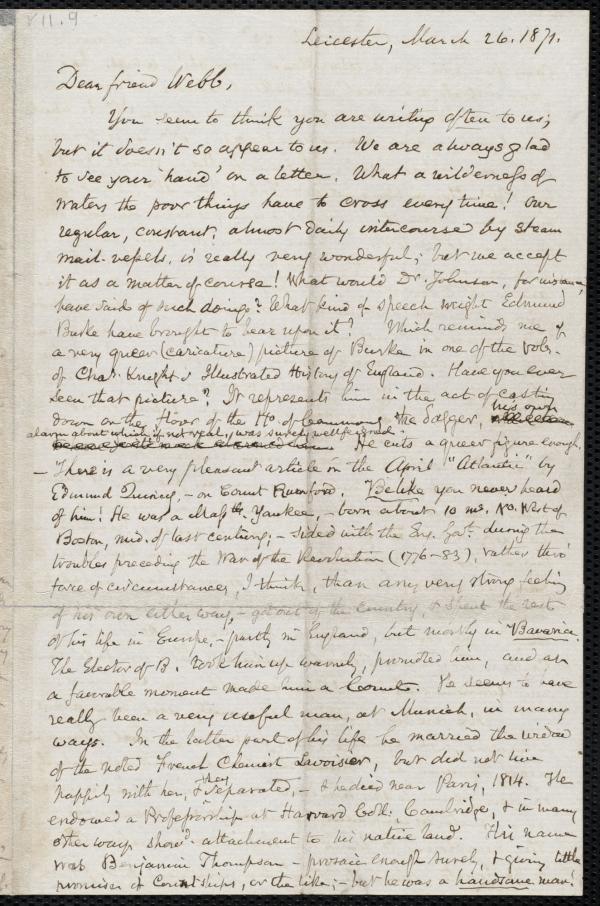 VII.9
Leicester, March 26. 1871.
Dear friend Webb,
You seem to think you are writing often to us;
but it doesn't so appear to us. We are always glad
to see your 'hand' on a letter. What a wilderness of
waters the poor things have to cross every time! Our
regular, constant, almost daily intercourse by steam
mail-vessels, is really very wonderful; but we accept
it as a matter of course! What would Dr. Johnson, for instance,
have said of such doings? What kind of speech weight Edmund
Burke have brought to bear upon it! Which reminds me of
a very queer (caricature) picture of Burke in one of the vols.
of Chas. Knight's Illustrated History of England. Have you ever
seen that picture? It represents him in the act of casting
down on the floor of the Ho. of Commons, the dagger, his own
alarm about which, if not real, was surely well feigned.
He cuts a queer figure enough.
— There is a very pleasant article in the April "Atlantic" by
Edmund Quincy, – on Count Rumford. Belike you never heard
of him! He was a Massts. Yankee, – born about 10 ms. No. West of
Boston, mid. of last century; – sided with the Eng. Govt. during the
troubles preceding the War of the Revolution (1776–83), rather thro'
force of circumstances, I think, than any very strong feeling
of his own either way, – got out of the country, & spent the rest
of his life in Europe, – partly in England, but mostly in Bavaria.
The Elector of B. took him up warmly, promoted him, and at
a favorable moment made him a Count. He seems to have
really been a very useful man, at Munich, in many
ways. In the latter part of his life he married the widow
of the noted French Chemist Lavoisier, but did not live
happily with her, & they separated, – & he died near Paris, 1814. He
endowed a Professorship at Harvard Coll. Cambridge, & in many
other ways showd. attachment to his native land. His name
was Benjamin Thompson – prosaic enough surely, & giving little
promise of Countships, or the like; – but he was a handsome man!